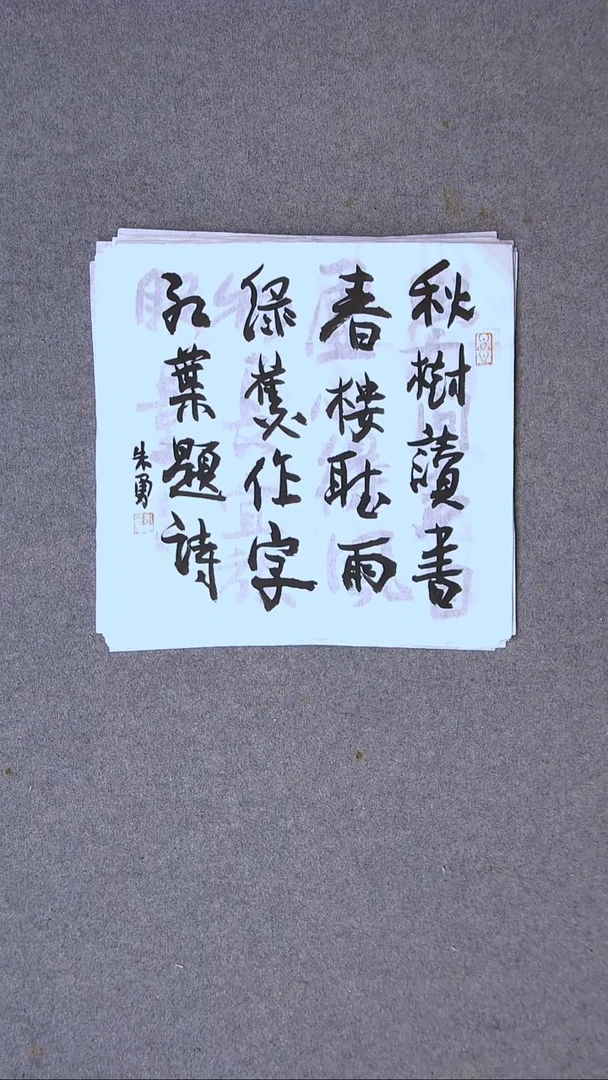 秋樹讀書
春樓聽雨
綠蕉作字
紅葉題詩
朱勇